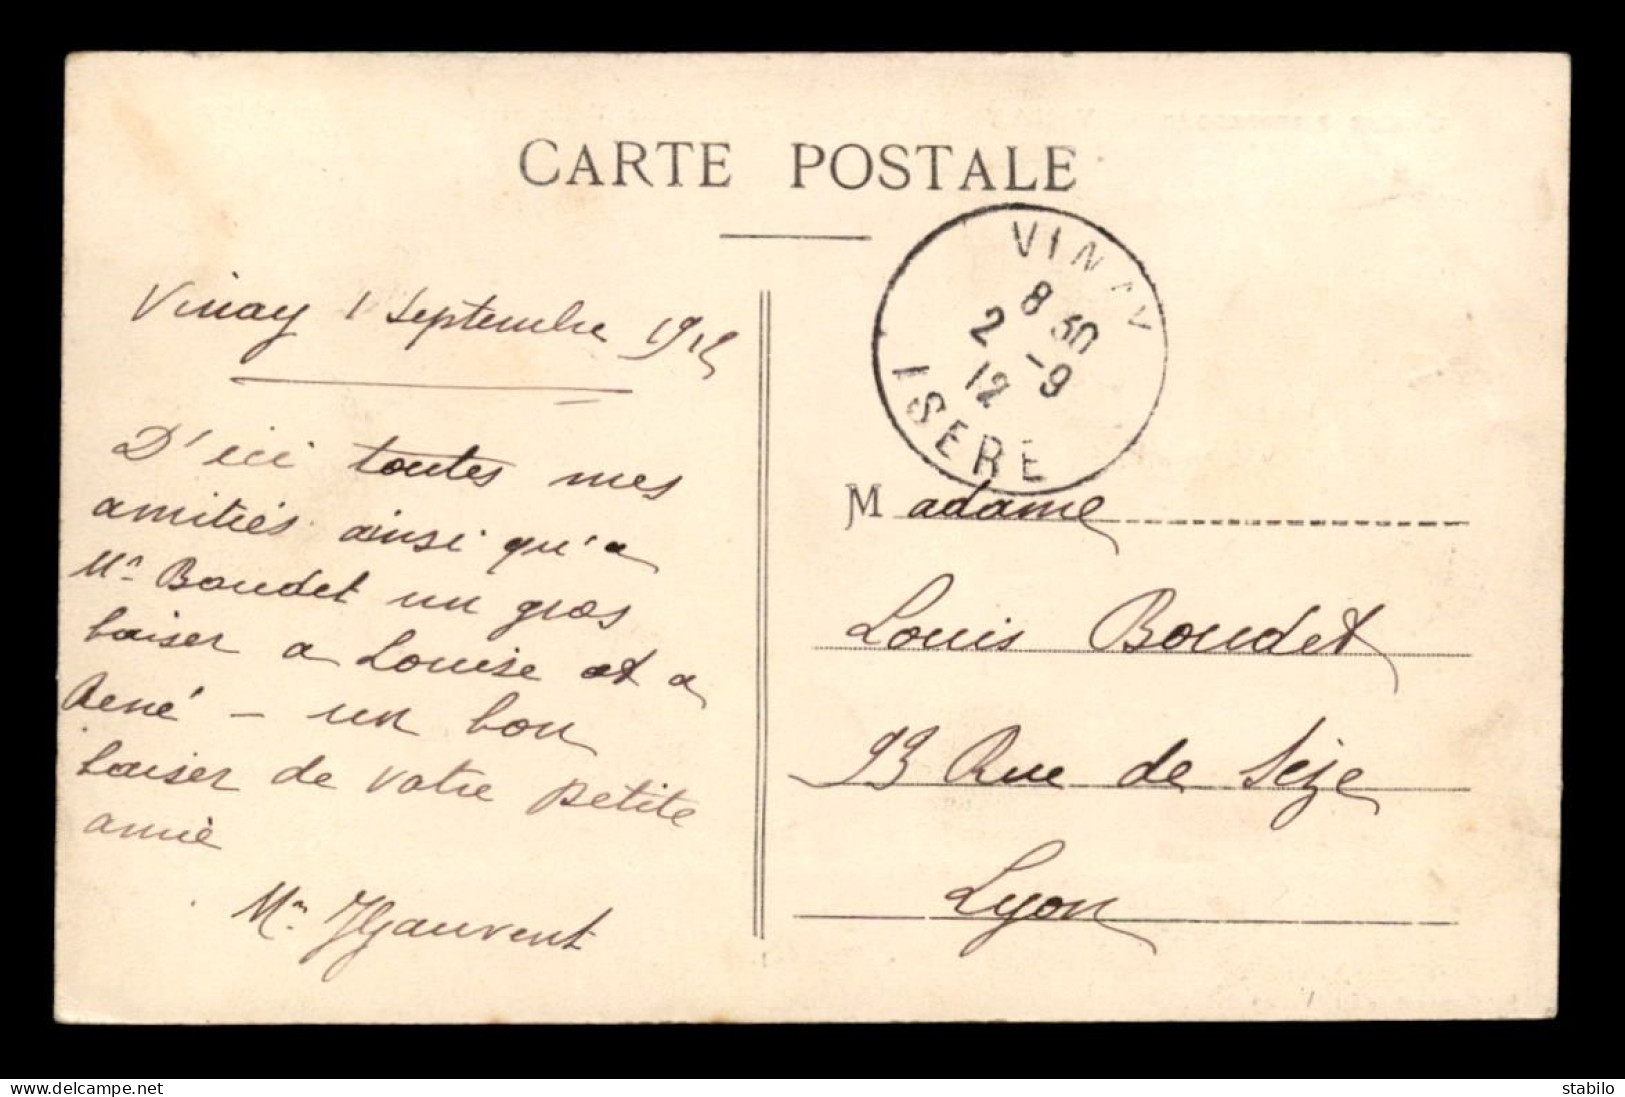 CARTE POSTALE
Vinay 1 Septembre 1912
D'ici toutes mes
amitiés ainsi qu'a
Mr Boudet un gros
baiser a Louise et a
René – un bon
baiser de votre petite
amie
VINAY
8 30
2 -9
12
ISERE
Madame
Louis Boudet
93 Rue de Sèze
Lyon
delcampe.net
stabilo